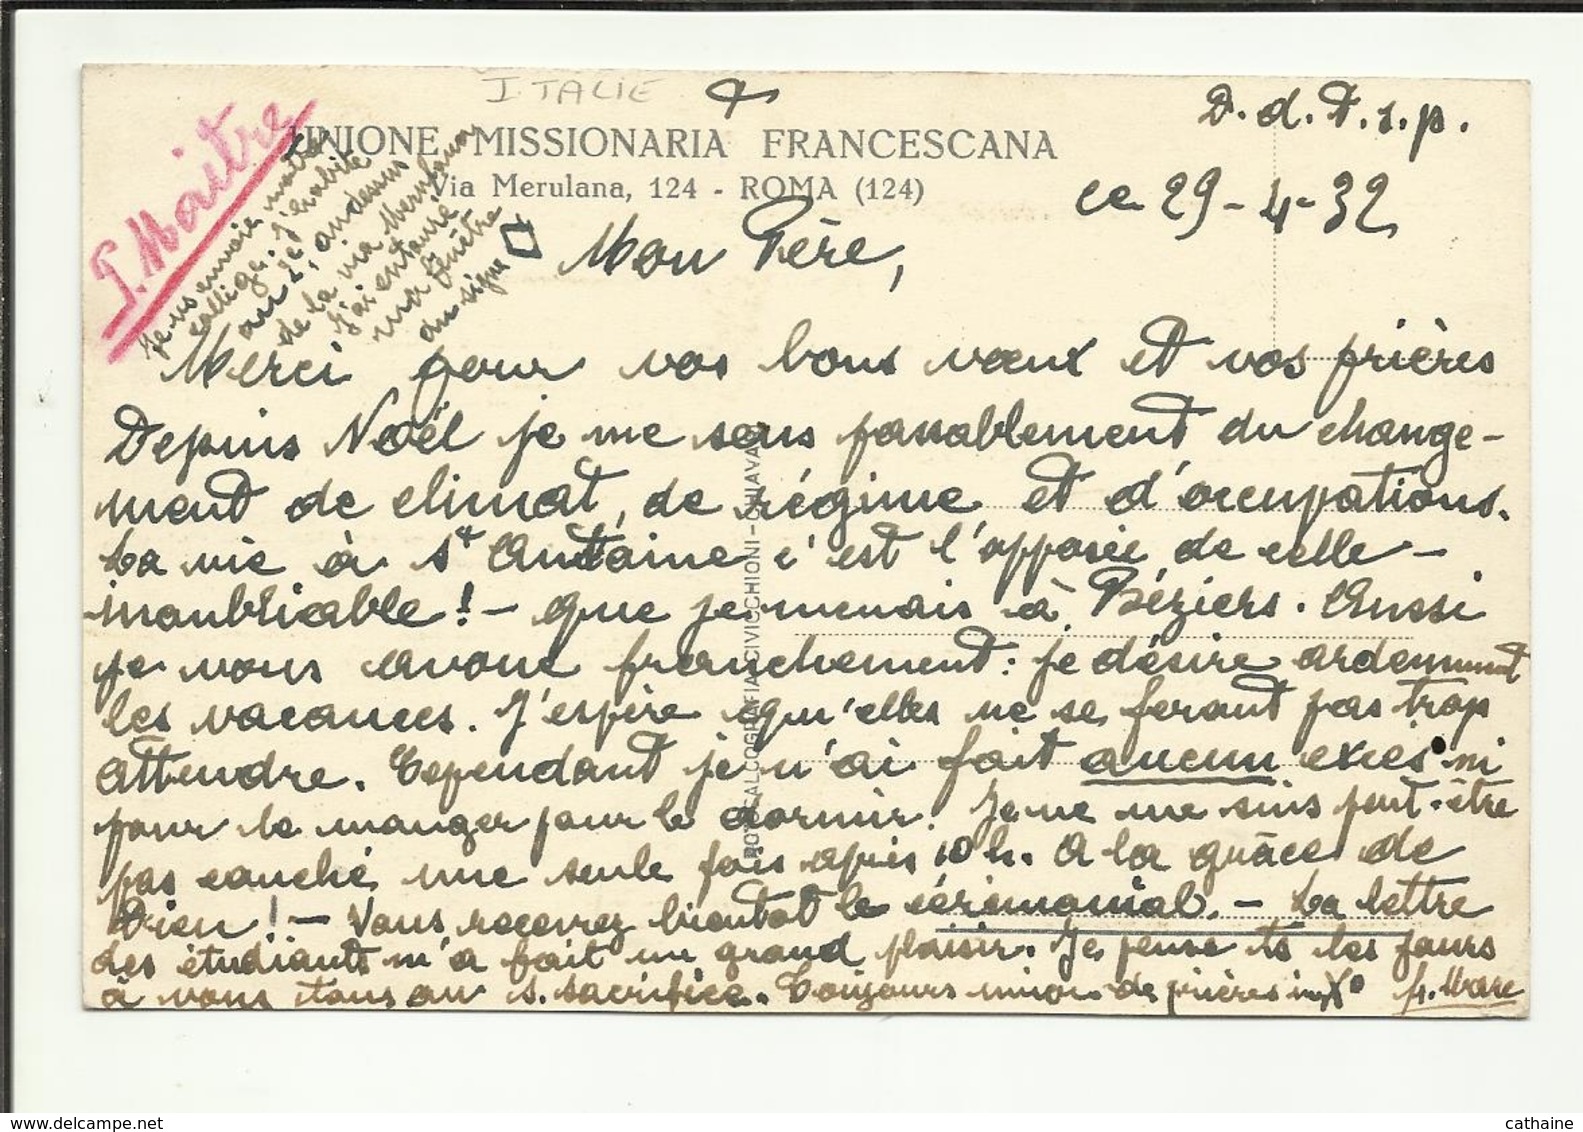 ITALIE
D. d. D. s. p.
UNIONE MISSIONARIA FRANCESCANA
Via Merulana, 124 - ROMA (124)
ce 29-4-32
P. Maitre
Je vs envoie notre
collège. J'habite
au 2e, au dessus
de la via Merulana
J'ai entouré
ma fenêtre
du signe
Mon Père,
Merci pour vos bons vœux et vos prières
Depuis Noël je me sens passablement du change-
ment de climat, de régime et d'occupations.
La vie à St Antoine c'est l'opposée de celle -
inoubliable ! - que je menais à Béziers. Aussi
je vous avoue franchement : je désire ardemment
les vacances. J'espère qu'elles ne se feront pas trop
attendre. Cependant je n'ai fait aucun excès ni
pour le manger pour le dormir. Je ne me suis peut-être
pas couché une seule fois après 10 h. A la grâce de
Dieu ! - Vous recevrez bientôt le cérémonial. - La lettre
des étudiants m'a fait un grand plaisir. Je pense ts les jours
à vous tous au S. Sacrifice. Toujours union de prières in Xo fr. Marc
ROTOCALCOGRAFIA CIVICCHIONI - CHIAVARI
cathaine
delcampe.net